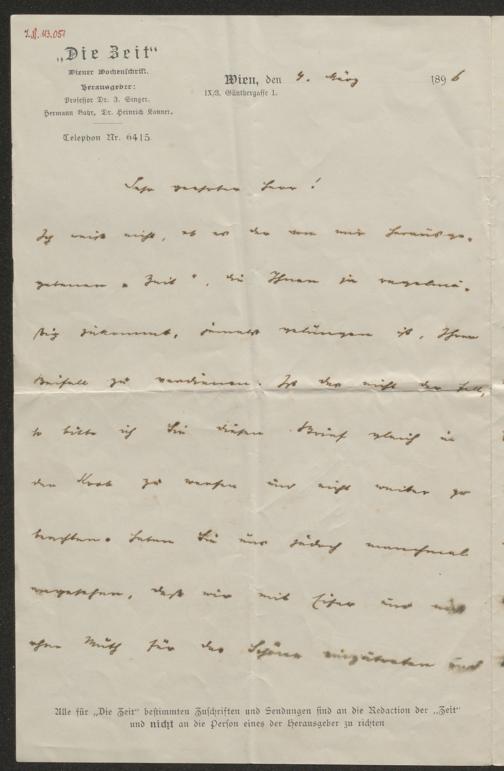 I.N. 113.051
„Die Zeit“
Wiener Wochenschrift.
Herausgeber:
Professor Dr. J. Singer,
Hermann Bahr, Dr. Heinrich Kanner.
Telephon Nr. 6415.
Wien, den 4. März 1896
IX/3, Günthergasse 1.
Sehr geehrter Herr!
Ich weiß nicht, ob es der von mir herausge-
gebenen „Zeit“, die Ihnen ja regelmä-
ßig zukommt, jemals gelungen ist, Ihren
Beifall zu verdienen. Ist das nicht der Fall,
so bitte ich Sie diesen Brief gleich in
den Korb zu werfen und nicht weiter zu
beachten. Haben Sie uns jedoch manchmal
angesehen, daß wir mit Eifer und nicht
ohne Muth für das Schöne einzutreten und
Alle für „Die Zeit“ bestimmten Zuschriften und Sendungen sind an die Redaction der „Zeit“
und nicht an die Person eines der Herausgeber zu richten